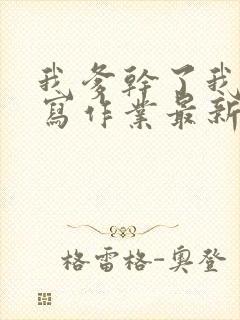 我爹幹了我
寫作業最新
格雷格-奧登